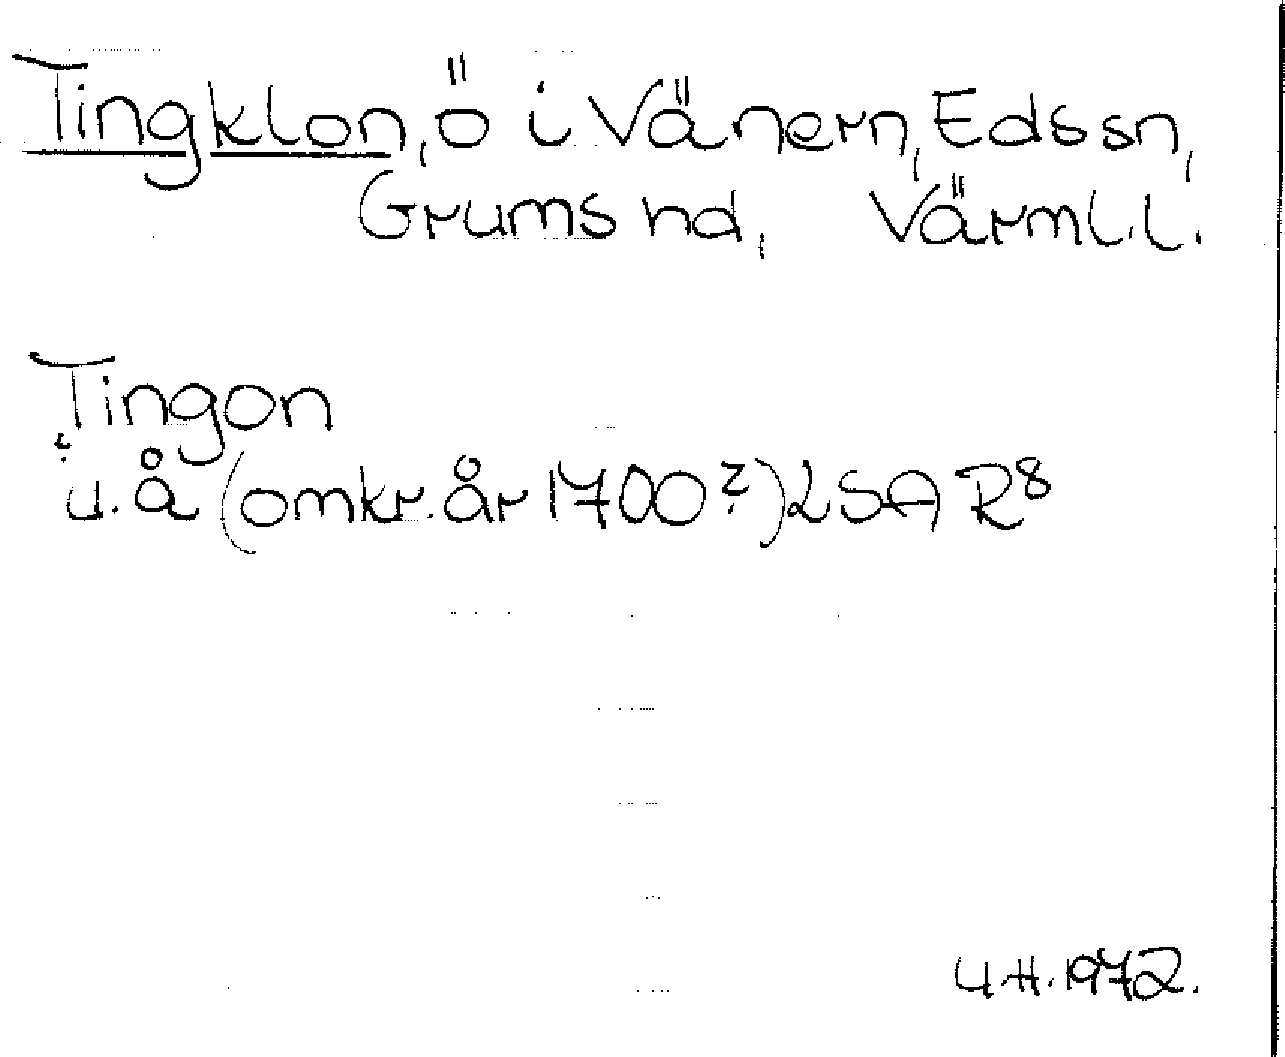 Tingklon, ö i Vänern, Eds sn,
Grums hd, Värml.l.
Tingon
u.å (omkr. år 1700?) LSA R8
U.H. 1972.